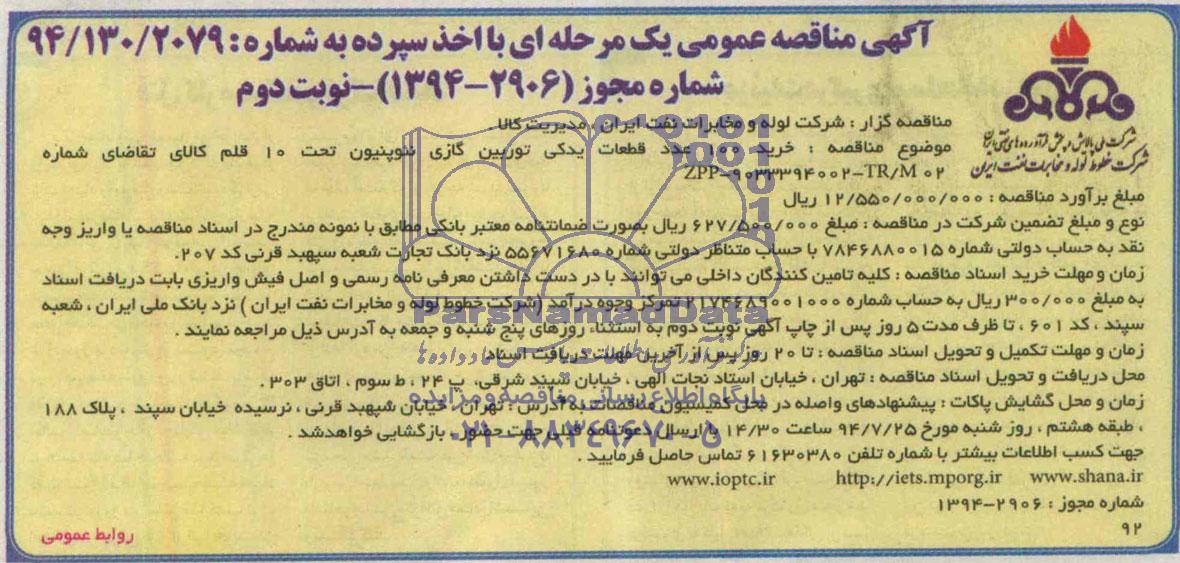 آگهی مناقصه عمومی یک مرحله ای با اخذ سپرده به شماره : ۹۴/۱۳۰/۲۰۷۹
شماره مجوز (۲۹۰۶-۱۳۹۴)-نوبت دوم
شرکت ملی پالایش و پخش فرآورده های نفتی ایران
شرکت خطوط لوله و مخابرات نفت ایران
مناقصه گزار : شرکت لوله و مخابرات نفت ایران ، مدیریت کالا
موضوع مناقصه : خرید ۱۰۰ عدد قطعات یدکی توربین گازی ننوپنیون تحت ۱۰ قلم کالای تقاضای شماره
ZPP-۹۰۳۳۳۹۴۰۰۲-TR/M ۰۲
مبلغ برآورد مناقصه : ۱۲/۵۵۰/۰۰۰/۰۰۰ ریال
نوع و مبلغ تضمین شرکت در مناقصه : مبلغ ۶۲۷/۵۰۰/۰۰۰ ریال بصورت ضمانتنامه معتبر بانکی مطابق با نمونه مندرج در اسناد مناقصه یا واریز وجه
نقد به حساب دولتی شماره ۷۸۴۶۸۸۰۰۱۵ با حساب متناظر دولتی شماره ۵۵۶۷۱۶۸۰ نزد بانک تجارت شعبه سپهبد قرنی کد ۲۰۷.
زمان و مهلت خرید اسناد مناقصه : کلیه تامین کنندگان داخلی می توانند با در دست داشتن معرفی نامه رسمی و اصل فیش واریزی بابت دریافت اسناد
به مبلغ ۳۰۰/۰۰۰ ریال به حساب شماره ۲۱۷۴۶۸۹۰۰۱۰۰۰ تمرکز وجوه درآمد (شرکت خطوط لوله و مخابرات نفت ایران ) نزد بانک ملی ایران ، شعبه
سپند ، کد ۶۰۱ ، تا ظرف مدت ۵ روز پس از چاپ آگهی نوبت دوم به استثناء روزهای پنج شنبه و جمعه به آدرس ذیل مراجعه نمایند .
زمان و مهلت تکمیل و تحویل اسناد مناقصه : تا ۲۰ روز پس از آخرین مهلت دریافت اسناد
محل دریافت و تحویل اسناد مناقصه : تهران ، خیابان استاد نجات الهی ، خیابان سپند شرقی، پ ۲۴ ، ط سوم ، اتاق ۳۰۳ .
زمان و محل گشایش پاکات : پیشنهادهای واصله در محل کمیسیون مناقصات به آدرس : تهران ، خیابان سپهبد قرنی ، نرسیده خیابان سپند ، پلاک ۱۸۸
، طبقه هشتم ، روز شنبه مورخ ۹۴/۷/۲۵ ساعت ۱۴/۳۰ با ارسال دعوتنامه قبلی جهت حضور ، بازگشایی خواهدشد .
جهت کسب اطلاعات بیشتر با شماره تلفن ۶۱۶۳۰۳۸۰ تماس حاصل فرمایید .
www.shana.ir http://iets.mporg.ir www.ioptc.ir
شماره مجوز : ۲۹۰۶-۱۳۹۴
۹۲
روابط عمومی
ParsNamadData
پایگاه اطلاع رسانی مناقصه و مزایده
۰۲۱-۸۸۳۴۹۶۷۰-۵